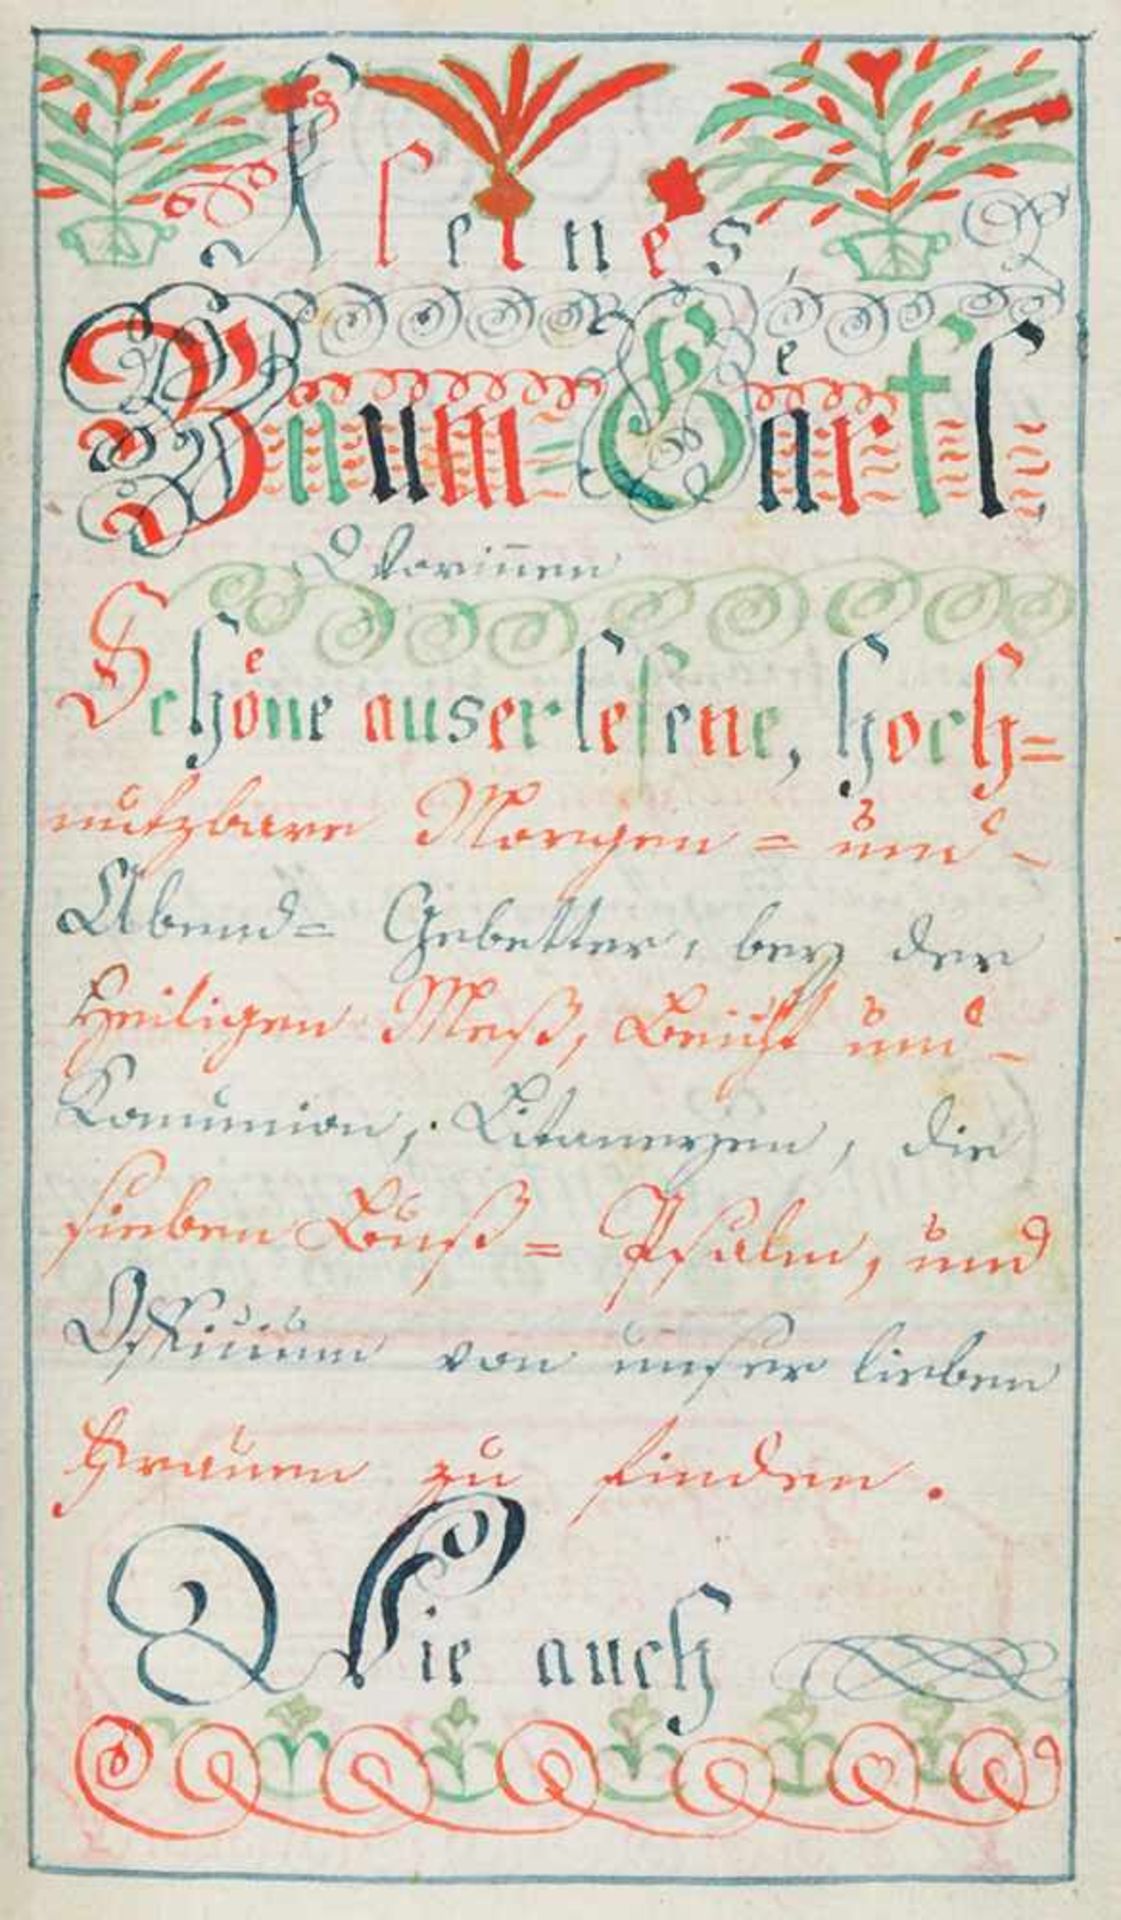 Kleines
Baum=Gärtl
Worin̄en
Schöne auserlesene, hoch=
nutzbare Morgen= und
Abend= Gebetter, bey der
Heiligen Meß, Beicht und
Komunion, Litaneyen, die
sieben Buß= Psalm, und
Offizium von unser lieben
Frauen zu finden.
Wie auch